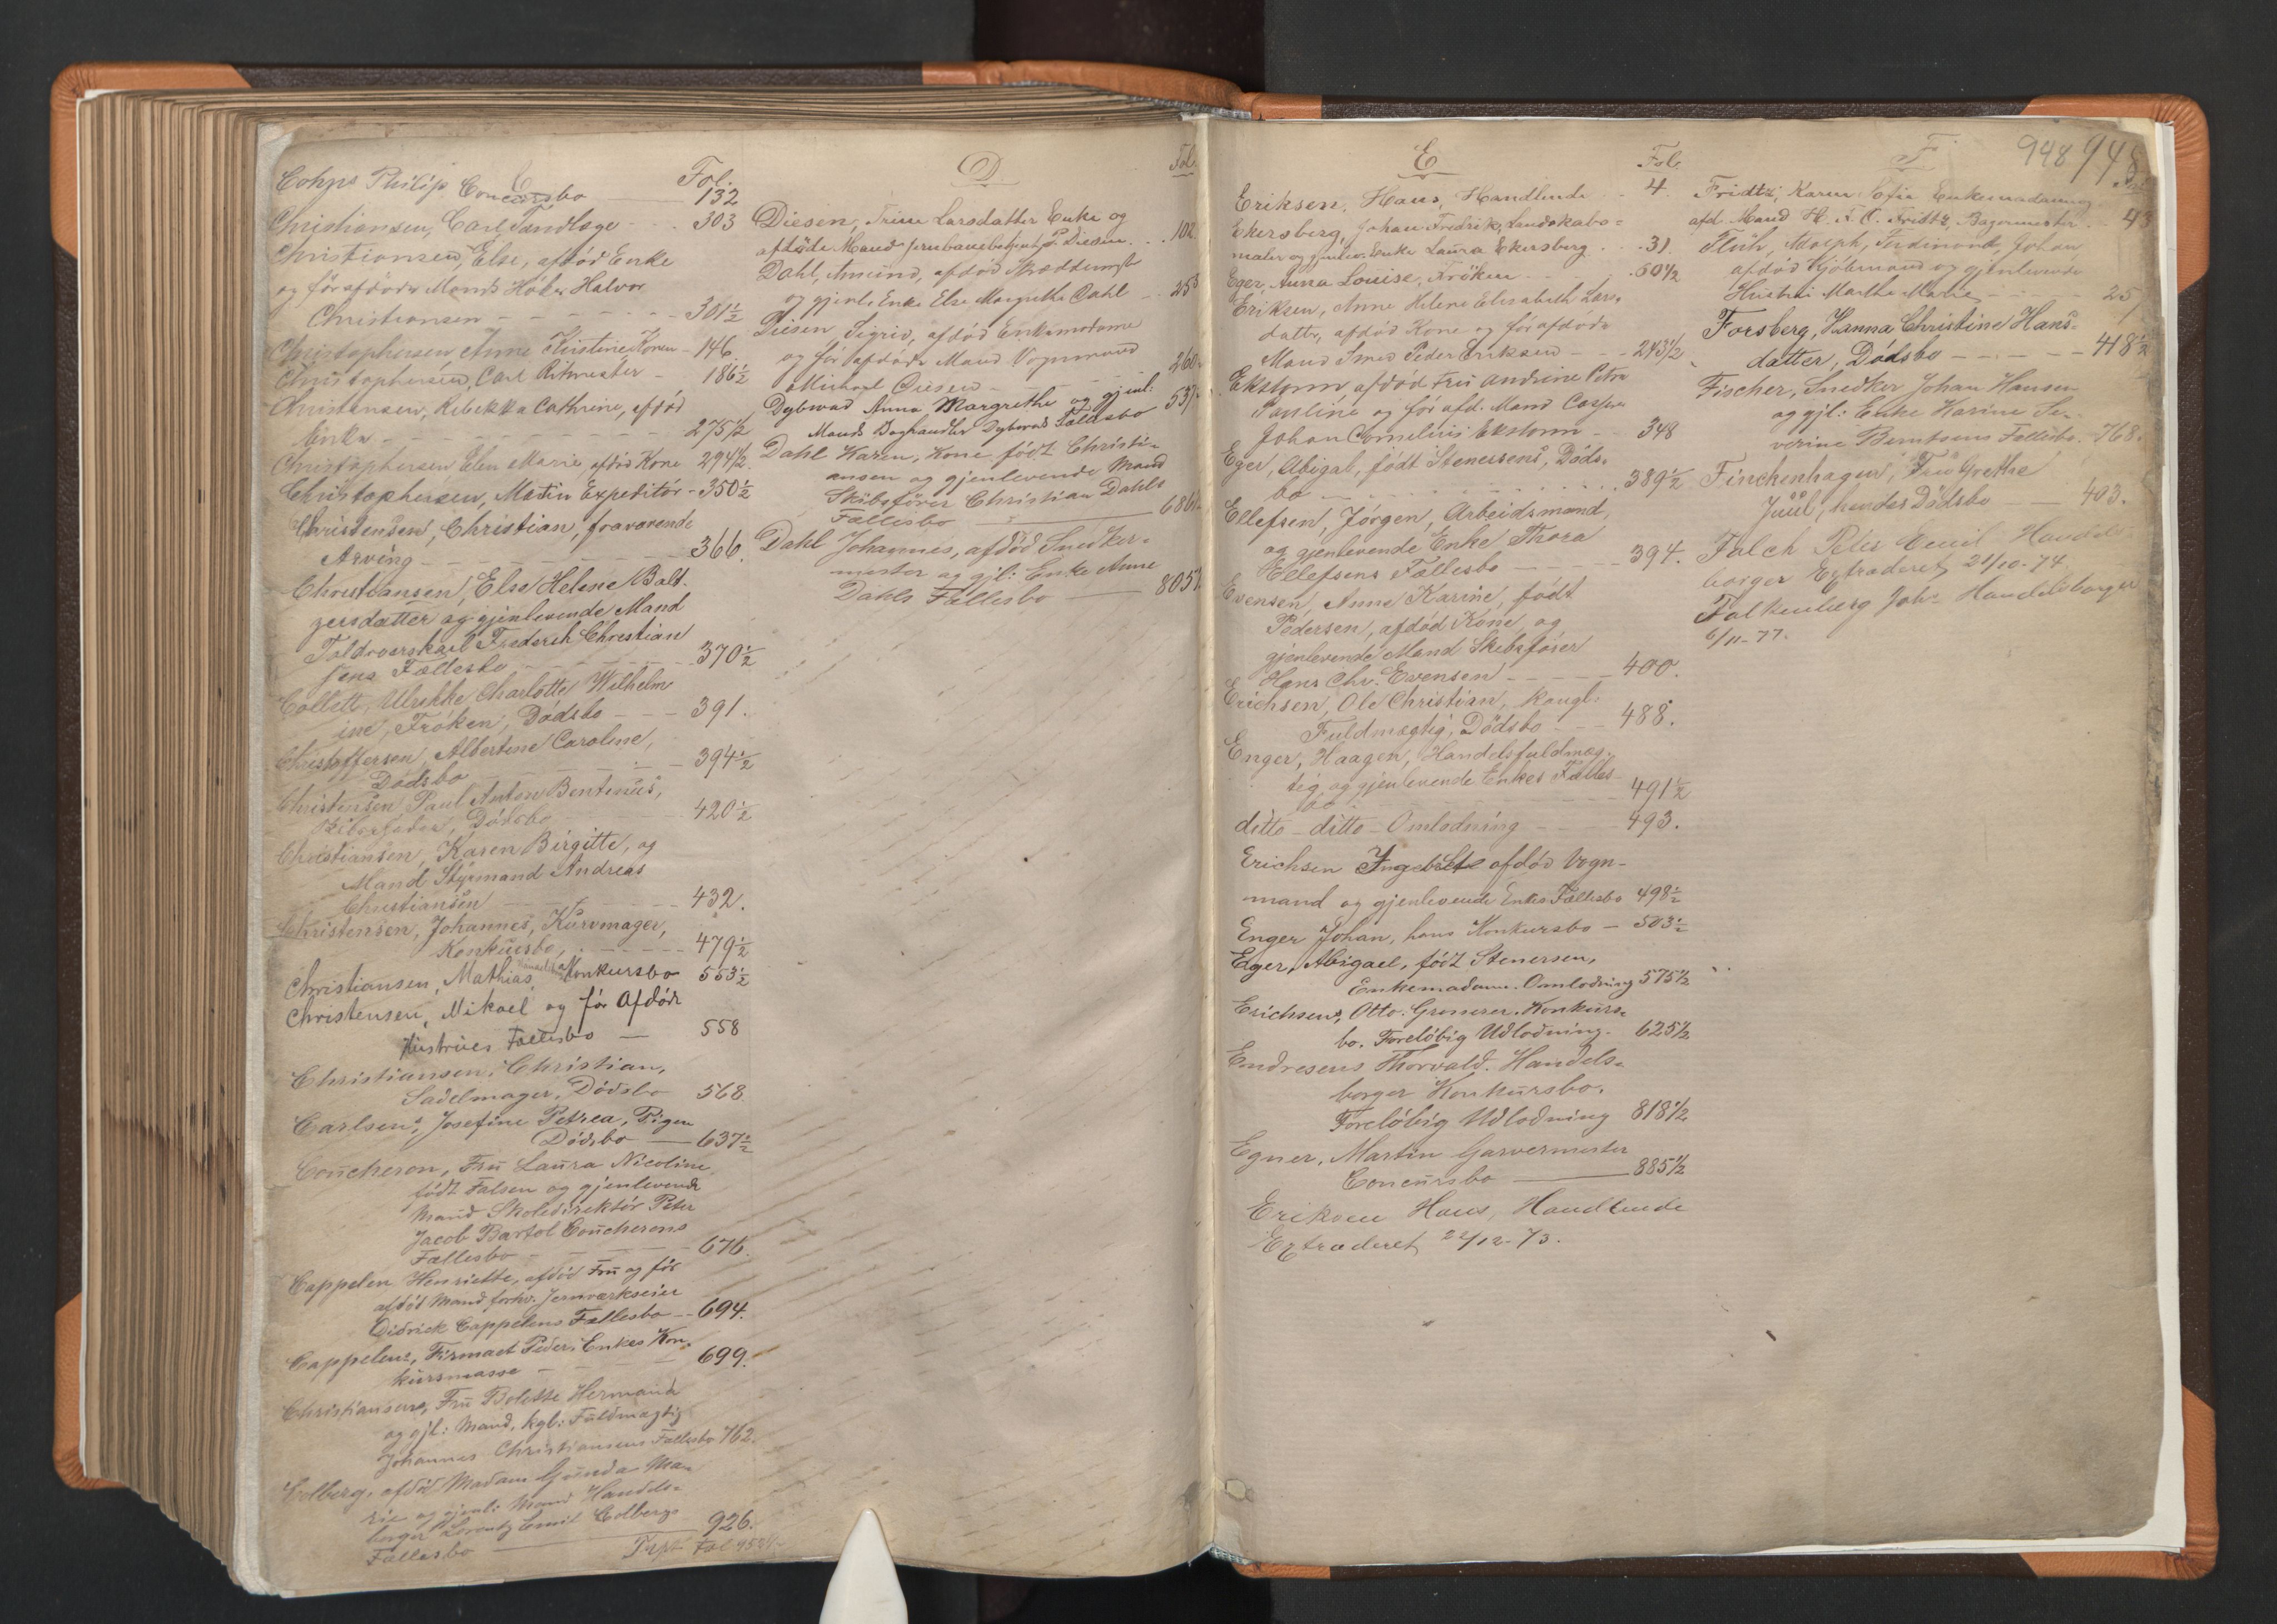 C
Fol.
Cohps Philip Concursbo 132
Christiansen, Carl Tandlæge - - 303
Christiansen, Else, afdød Enke
og før afdøde Mands Høker Halvor
Christiansen - - - - - 301½
Christophersen Anne Kistine Konen - 146.
Christophersen, Carl Ritmester - 186½
Christensen, Rebekka Cathrine, afdød
Enke - - - - - - 275½
Christophersen Elen Marie, afdød Kone 294½.
Christophersen, Martin Expeditør - 350½
Christensen, Christian, fraværende
Arving - - - - - - 366.
Christiansen, Else Helene Balt-
zersdatter og gjenlevende Mand
Toldoverskarl Frederik Christian
sens Fællesbo - - - - 370½
Collett, Ulrikke Charlotte Wilhelm
ine, Frøken, Dødsbo - - - 391.
Christoffersen, Albertine Caroline,
Dødsbo - - - - - 394½
Christensen, Paul Anton Bentinus,
Dødsbo 420½
Christiansen, Karen Birgitte, og
Mand Styrmand Andreas
Christiansen - - - - 432.
Christensen, Johannes, Kurvmager,
Konkursbo, - - - - - 479½
Christiansen, Mathias, Konkursbo 553½
Christensen, Mikael og før Afdøde
Hustrues Fællesbo — 558
Christiansen, Christian,
Sadelmager, Dødsbo 568.
Carlsens, Josefine Petrea, Pigen
Dødsbo — 637½
Coucheron, Fru Laura Nicoline,
født Falsen og gjenlevende
Mand Skoledirektør Peter
Jacob Bartol Coucherons
Fællesbo - - - - 676.
Cappelen Henriette, afdød Fru og før
afdød Mand forhv. Jernværkseier
Didrick Cappelens Fællesbo - - 694.
Cappelens, Firmaet Peder, Enkes Kon-
kursmasse - - - - 699.
Christiansens, Fru Bolette Hermana
og gjl: Mand, kgl: Fuldmægtig
Johannes Christiansens Fællesbo 762.
Colberg, afdød Madam Gunda Ma-
rie og gjenl: Mand Handels-
borger Lorentz Emil Colbergs
Fællesbo — 926.
D
Fol.
Diesen, Trine Larsdatter Enke og
afdøde Mand Jernbanebetjent P. Diesen . . 102.
Dahl, Amund, afdød Bræddetomts
og gjenl. Enke Else Margrethe Dahl - . 253
Diesen Sigrid, afdød Enkemadame
og før afdøde Mand Vognmand
Michael Diesen - - - 260
Dybwad Anna Margrethe og gjenl:
Mands Boghandler Dybwad Fællesbo 537
Dahl Karen, Kone, født Christi-
ansen og gjenlevende Mand
Skibsfører Christian Dahls
Fællesbo — 686
Dahl Johannes, afdød Snedker-
mester og gjl: Enke Anne
Dahls Fællesbo — 805
E
Fol.
Eriksen, Hans, Handlende - 4
Ekersberg, Johan Fredrik, Landskabs-
maler og gjenlev. Enke Laura Ekersberg . . 31.
Eger, Anna Louise, Frøken . . . 60½
Eriksen, Anne Helene Elisabeth Lars-
datter, afdød Kone og før afdøde
Mand Smed Peder Eriksen - - - 243½
Ekstorm afdød Fru Andrine Petra
Pauline og før afd. Mand Casper
Johan Cornelius Ekstorm - 348
Eger, Abigal, født Stenersens, Døds-
bo . . . . . . 389½
Ellefsen, Jørgen, Arbeidsmand,
og gjenlevende Enke Thora
Ellefsens Fællesbo - - - 394.
Evensen, Anne Karine, født
Pedersen, afdød Kone, og
gjenlevende Mand Skibsfører
Hans Chr. Evensen - - - - 400.
Erichsen, Ole Christian, kongl:
Fuldmægtig, Dødsbo - - - 488.
Enger, Haagen, Handelsfuldmæg-
tig, og gjenlevende Enkes Fælles-
bo - - - - - 491½
ditto - ditto - Omlodning - - - 493.
Erichsen Ingebret afdød Vogn-
mand og gjenlevende Enkes Fællesbo 498½
Enger Johan, hans Konkursbo - 503½
Eger, Abigael, født Stenersen,
Enkemadame. Omlodning 575½
Erichsens, Otto. Grosserer. Konkurs-
bo. Foreløbig Udlodning. 625½
Endresens Thorvald. Handels-
borger Konkursbo.
Foreløbig Udlodning 818½
Egner, Martin Garvermester
Concursbo — 885½
Eriksen Hans, Handlende
Extraderet 22/12-73.
F
948 948
Fridtz, Karen Sofie Enkemadame og
afd. Mand H. F. C. Fridtz, Bagermester . 43
Fluh, Adolph, Ferdinand, Johan,
afdød Kjøbmand og gjenlevende
Hustru Marthe Marie - - - - 25
Forsberg, Hanna Christine Hans-
datter, Dødsbo - - - - - 418½
Fischer, Snedker Johan Hansen
og gjl: Enke Karine Se-
verine Berntsens Fællesbo. - 768.
Finckenhagen, Fru Grethe
Juul, hendes Dødsbo — 403.
Falch Peter Emil Handels
borger Extraderet 21/10-74
Falkenberg Johs Handelsborger
6/11-77.